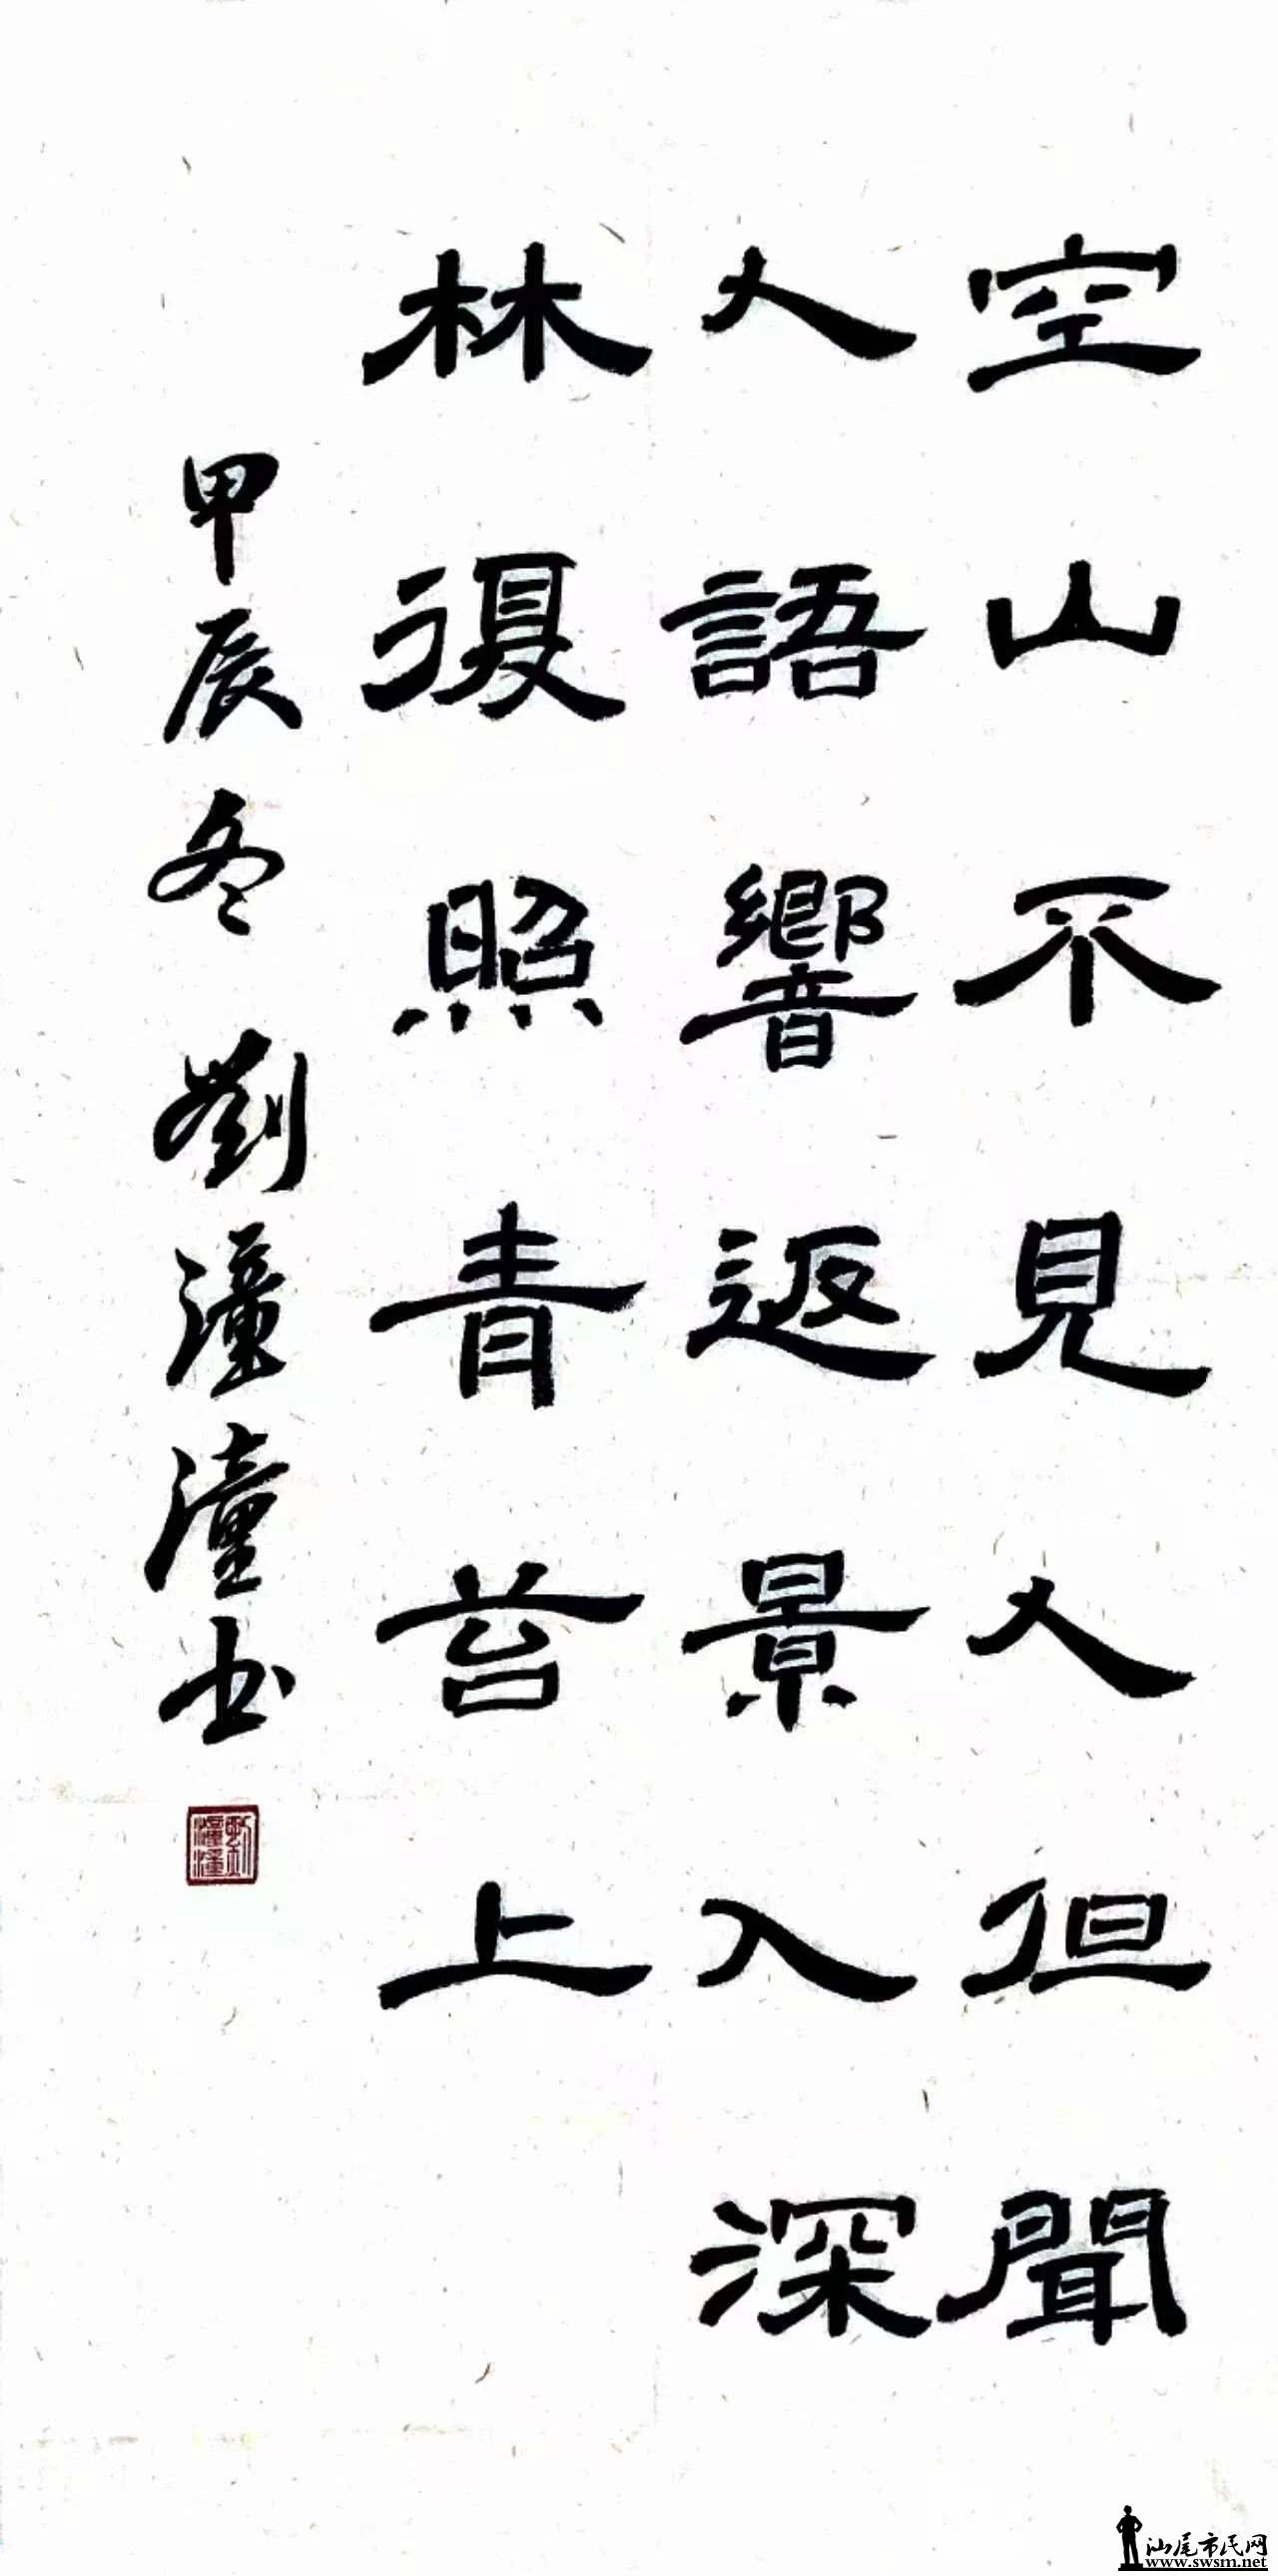 空山不見人但聞
人語響返景入深
林復照青苔上
甲辰冬 劉潼潼书
劉潼潼
汕尾市民网
www.swsm.net